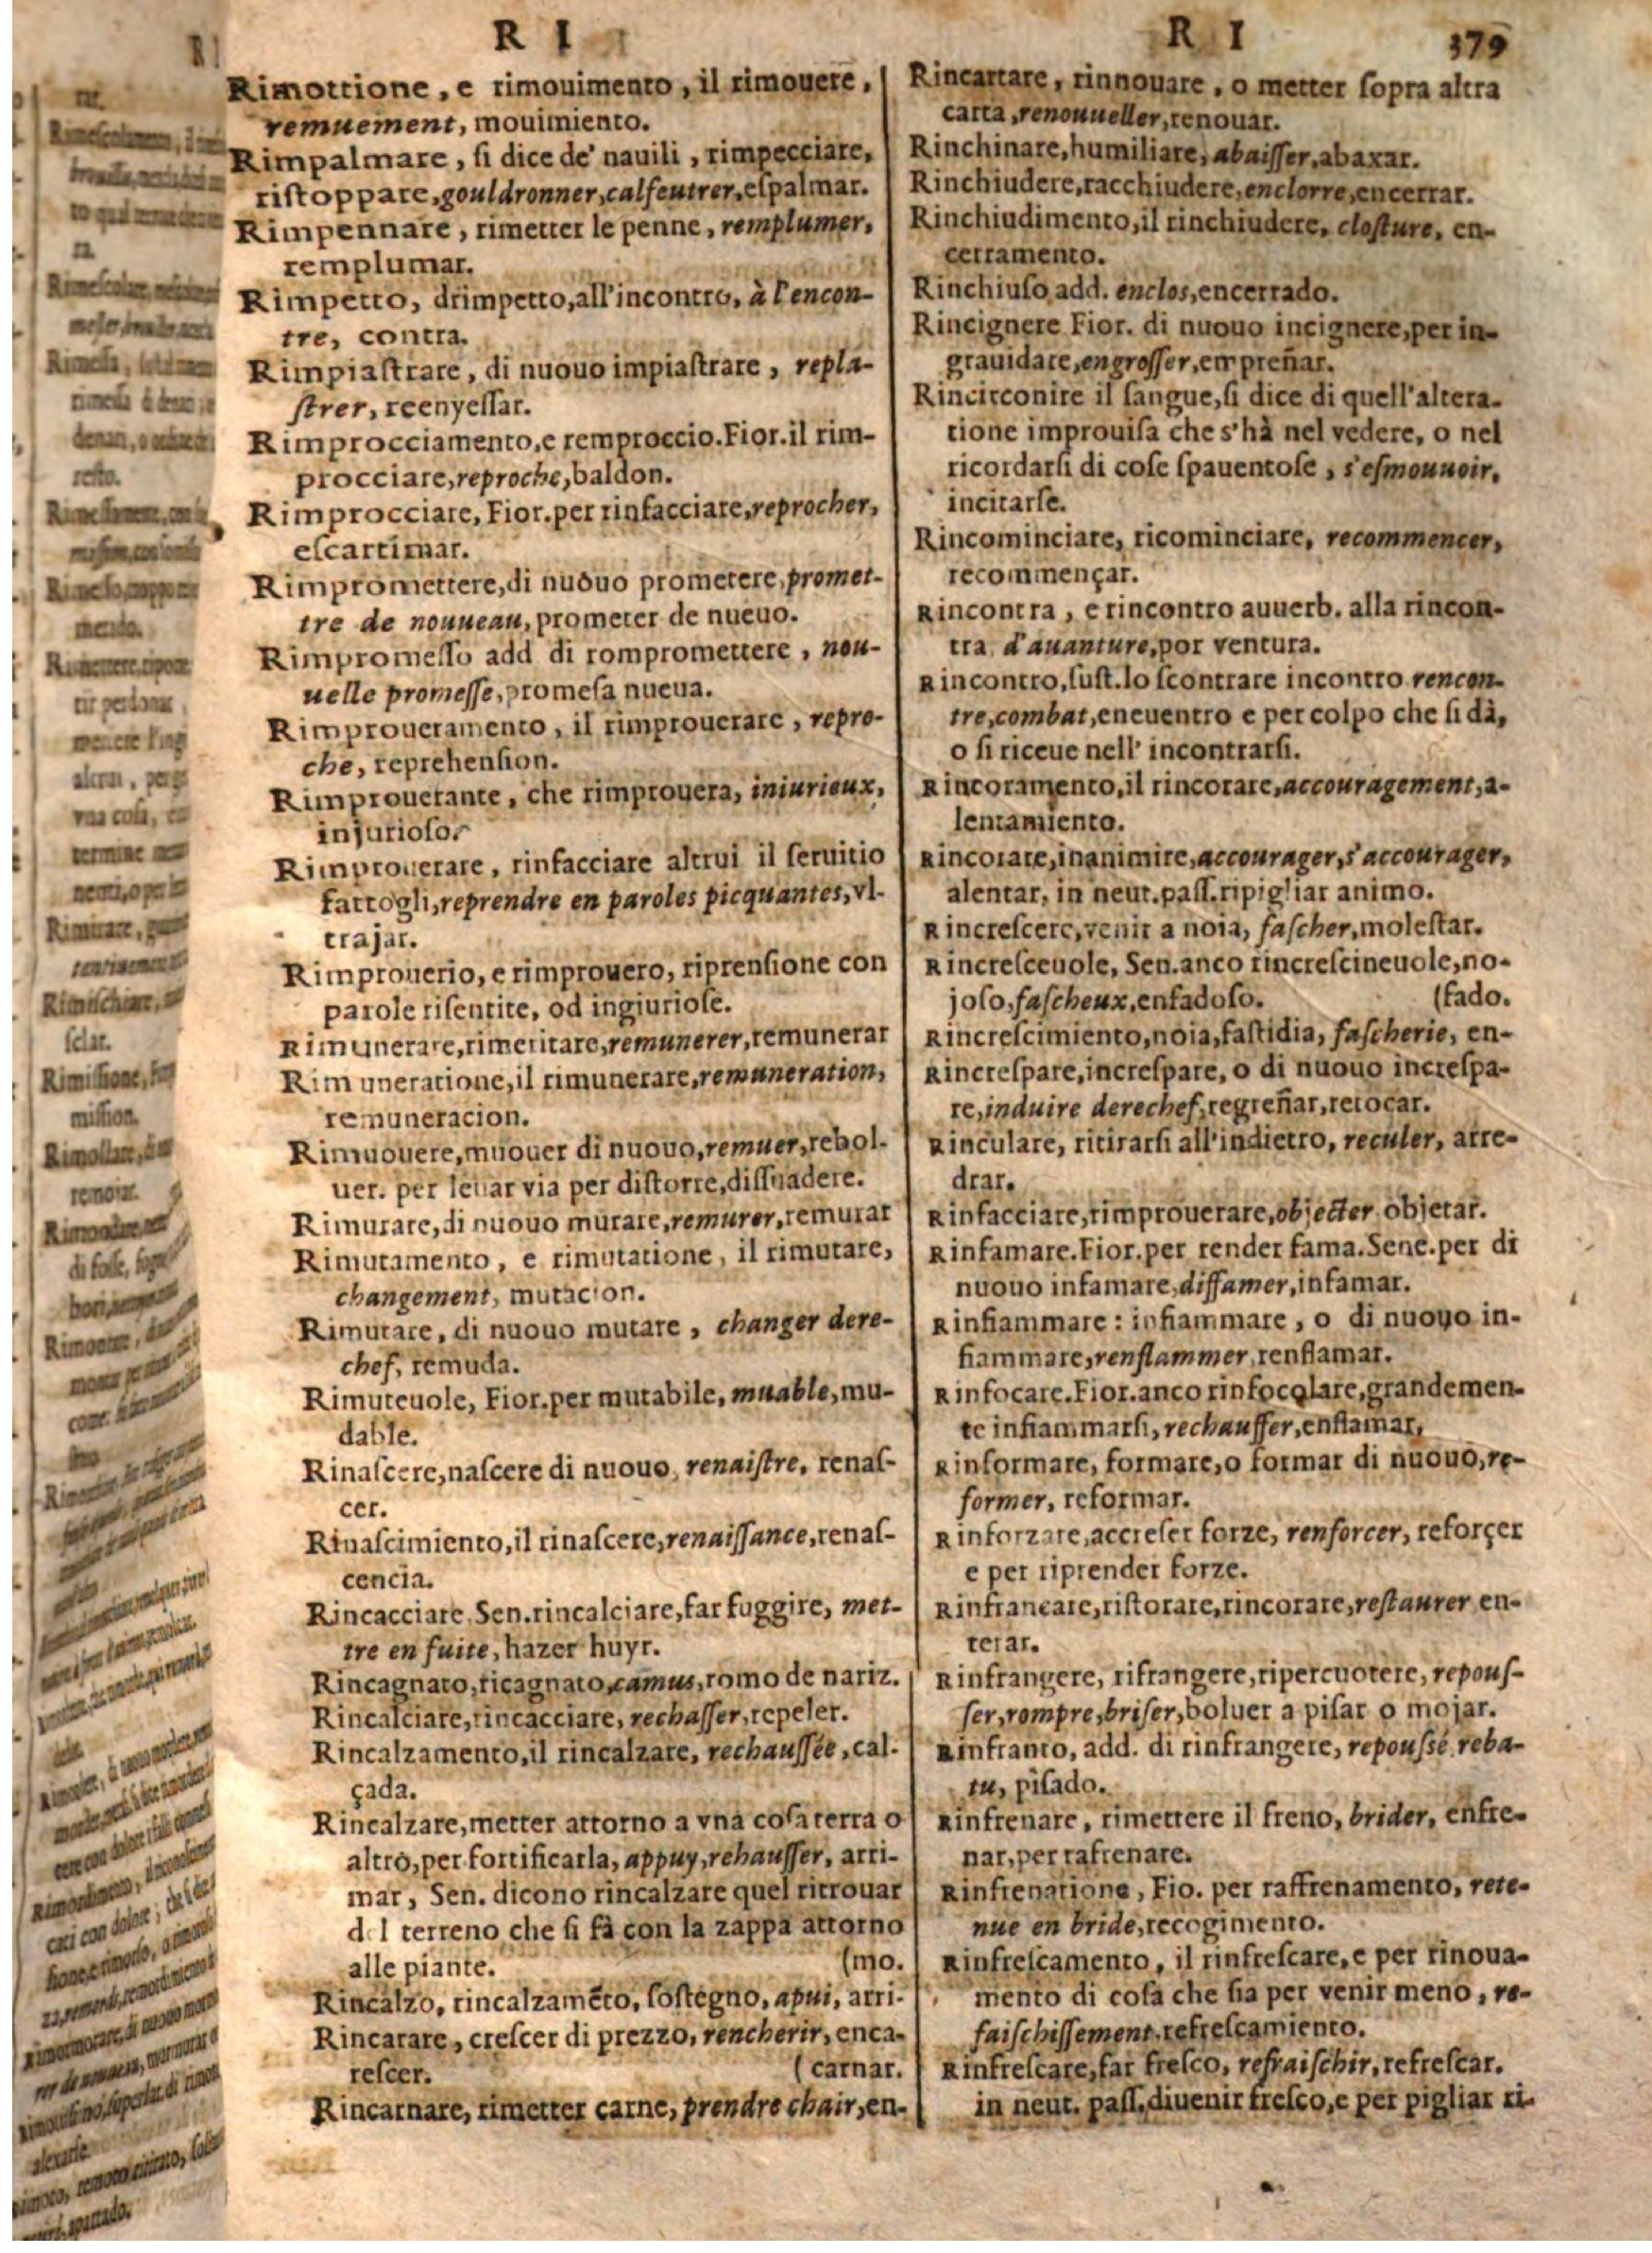 R I
Rimottione, e rimouimento, il rimouere,
remuement, mouimiento.
Rimpalmare, ſi dice de' nauili, rimpecciare,
riſtoppare, gouldronner, calfeutrer, eſpalmar.
Rimpennare, rimetter le penne, remplumer,
remplumar.
Rimpetto, drimpetto, all'incontro, à l'encon-
tre, contra.
Rimpiaſtrare, di nuouo impiaſtrare, repla-
ſtrer, reenyeſſar.
Rimprocciamento, e remproccio. Fior. il rim-
procciare, reproche, baldon.
Rimprocciare, Fior. per rinfacciare, reprocher,
eſcartimar.
Rimpromettere, di nuouo prometere, promet-
tre de nouueau, prometer de nueuo.
Rimpromeſſo add di rompromettere, nou-
uelle promeſſe, promeſa nueua.
Rimproueramento, il rimprouerare, repro-
che, reprehenſion.
Rimprouerante, che rimprouera, iniurieux,
injurioſo.
Rimprouerare, rinfacciare altrui il ſeruitio
fattogli, reprendre en paroles picquantes, vl-
trajar.
Rimprouerio, e rimprouero, riprenſione con
parole riſentite, od ingiurioſe.
Rimunerare, rimeritare, remunerer, remunerar
Rimuneratione, il rimunerare, remuneration,
remuneracion.
Rimuouere, muouer di nuouo, remuer, rebol-
uer. per leuar via per diſtorre, diſſuadere.
Rimurare, di nuouo murare, remurer, remurar
Rimutamento, e rimutatione, il rimutare,
changement, mutacion.
Rimutare, di nuouo mutare, changer dere-
chef, remuda.
Rimuteuole, Fior. per mutabile, muable, mu-
dable.
Rinaſcere, naſcere di nuouo, renaiſtre, renaſ-
cer.
Rinaſcimiento, il rinaſcere, renaiſſance, renaſ-
cencia.
Rincacciare. Sen. rincalciare, far fuggire, met-
tre en fuite, hazer huyr.
Rincagnato, ricagnato, camus, romo de nariz.
Rincalciare, rincacciare, rechaſſer, repeler.
Rincalzamento, il rincalzare, rechauſſée, cal-
çada.
Rincalzare, metter attorno a vna coſa terra o
altro, per fortificarla, appuy, rehauſſer, arri-
mar, Sen. dicono rincalzare quel ritrouar
del terreno che ſi fà con la zappa attorno
alle piante. (mo.
Rincalzo, rincalzamẽto, ſoſtegno, apui, arri-
Rincarare, creſcer di prezzo, rencherir, enca-
reſcer. (carnar.
Rincarnare, rimetter carne, prendre chair, en-
R I 379
Rincartare, rinnouare, o metter ſopra altra
carta, renouueller, renouar.
Rinchinare, humiliare, abaiſſer, abaxar.
Rinchiudere, racchiudere, enclorre, encerrar.
Rinchiudimento, il rinchiudere, cloſture, en-
cerramento.
Rinchiuſo add. enclos, encerrado.
Rincignere Fior. di nuouo incignere, per in-
grauidare, engroſſer, empreñar.
Rincirconire il ſangue, ſi dice di quell'altera-
tione improuiſa che s'hà nel vedere, o nel
ricordarſi di coſe ſpauentoſe, s'eſmouuoir,
incitarſe.
Rincominciare, ricominciare, recommencer,
recommençar.
Rincontra, e rincontro auuerb. alla rincon-
tra. d'auanture, por ventura.
Rincontro, ſuſt. lo ſcontrare incontro rencon-
tre, combat, encuentro e per colpo che ſi dà,
o ſi riceue nell' incontrarſi.
Rincoramento, il rincorare, accouragement, a-
lentamiento.
Rincorare, inanimire, accourager, s'accourager,
alentar, in neut. paſſ. ripigliar animo.
Rincreſcere, venir a noia, faſcher, moleſtar.
Rincreſceuole, Sen. anco rincreſcineuole, no-
joſo, faſcheux, enfadoſo. (fado.
Rincreſcimiento, noia, faſtidia, faſcherie, en-
Rincreſpare, increſpare, o di nuouo increſpa-
re, induire derechef, regreñar, retocar.
Rinculare, ritirarſi all'indietro, reculer, arre-
drar.
Rinfacciare, rimprouerare, objecter objetar.
Rinfamare. Fior. per render fama. Sene. per di
nuouo infamare, diffamer, infamar.
Rinfiammare: infiammare, o di nuouo in-
fiammare, renflammer, renflamar.
Rinfocare. Fior. anco rinfocolare, grandemen-
te infiammarſi, rechauffer, enflamar,
Rinformare, formare, o formar di nuouo, re-
former, reformar.
Rinforzare, accreſer forze, renforcer, reforçer
e per riprender forze.
Rinfrancare, riſtorare, rincorare, reſtaurer en-
terar.
Rinfrangere, rifrangere, ripercuotere, repouſ-
ſer, rompre, briſer, boluer a piſar o mojar.
Rinfranto, add. di rinfrangere, repouſsé, reba-
tu, piſado.
Rinfrenare, rimettere il freno, brider, enfre-
nar, per rafrenare.
Rinfrenatione, Fio. per raffrenamento, rete-
nue en bride, recogimento.
Rinfreſcamento, il rinfreſcare, e per rinoua-
mento di coſa che ſia per venir meno, re-
faiſchiſſement. refreſcamiento.
Rinfreſcare, far freſco, refraiſchir, refreſcar.
in neut. paſſ. diuenir freſco, e per pigliar ri-